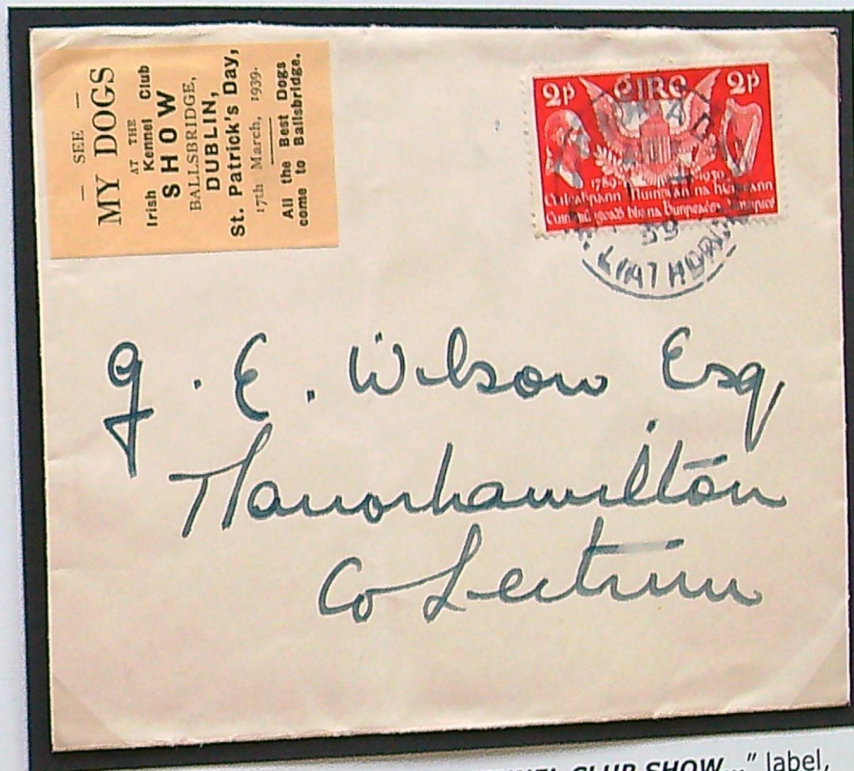 — SEE —
MY DOGS
AT THE
Irish Kennel Club
SHOW
BALLSBRIDGE,
DUBLIN,
St. Patrick's Day,
17th March, 1939.
All the Best Dogs
come to Ballsbridge.
2p EIRE 2p
1789-1939
39
G. E. Wilson Esq,
Manorhamilton
Co Leitrim
CLUB SHOW..." label,